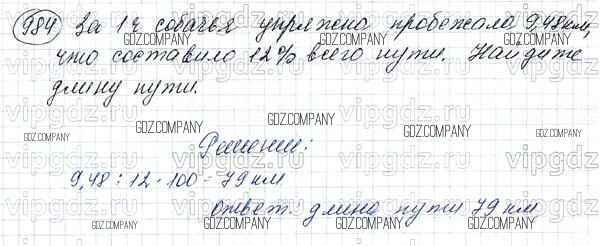 984 За 1 ч собачья упряжка пробежала 9,48 км,
что составило 12% всего пути. Найдите
длину пути.
Решение:
9,48 : 12 · 100 = 79 км
Ответ: длина пути 79 км